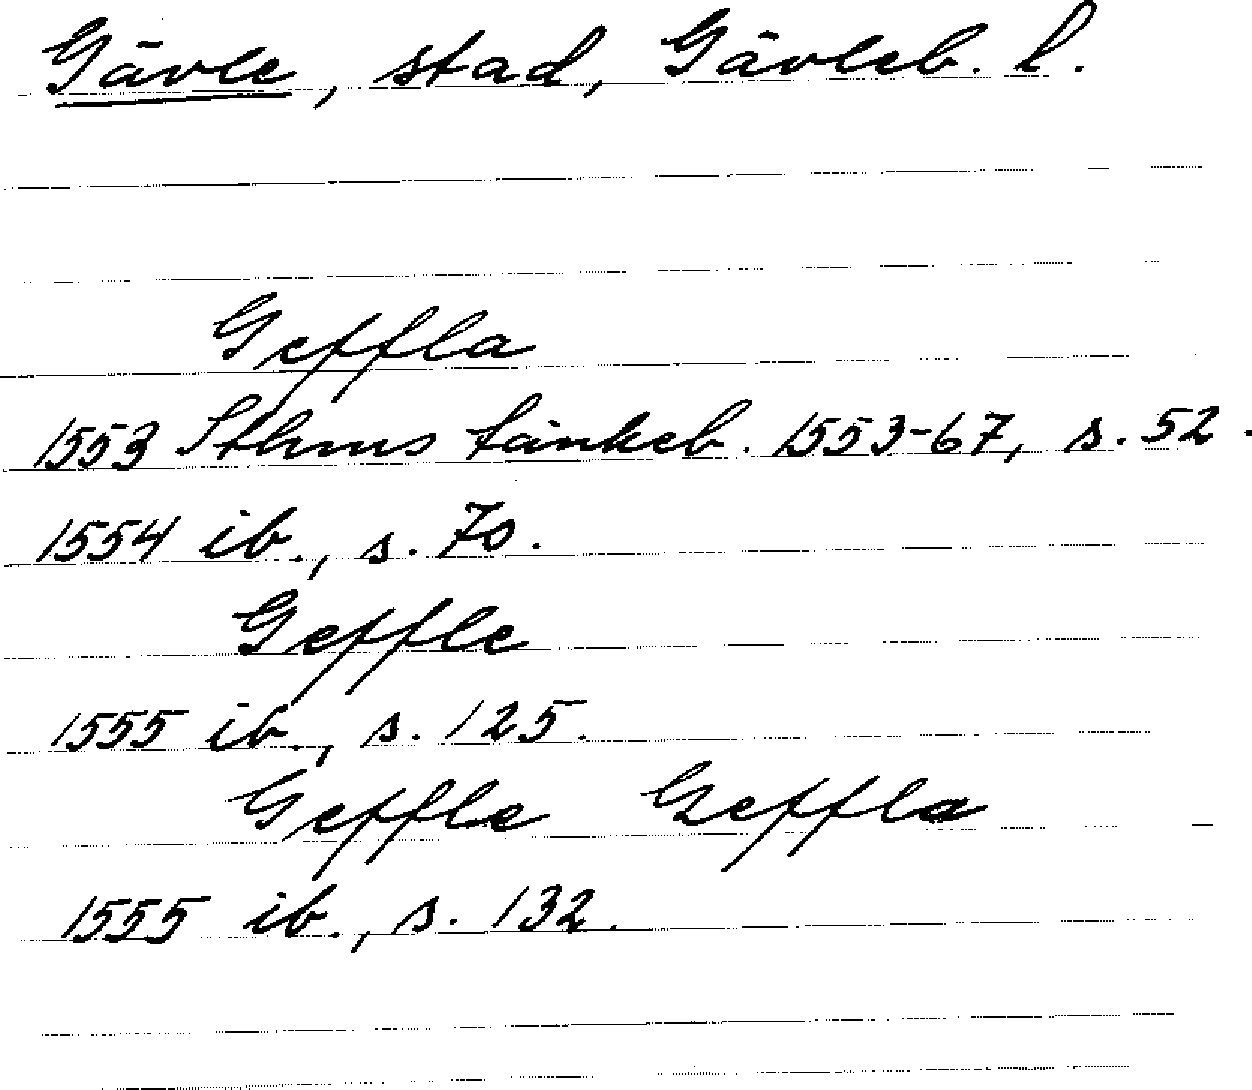 Gävle, stad, Gävleb. l.
Geffla
1553 Sthms tänkeb. 1553-67, s. 52.
1554 ib., s. 70.
Geffle
1555 ib., s. 125.
Geffle Geffla
1555 ib., s. 132.